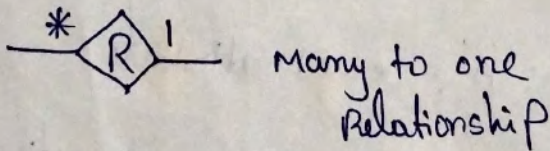 * R 1 Many to one
Relationship